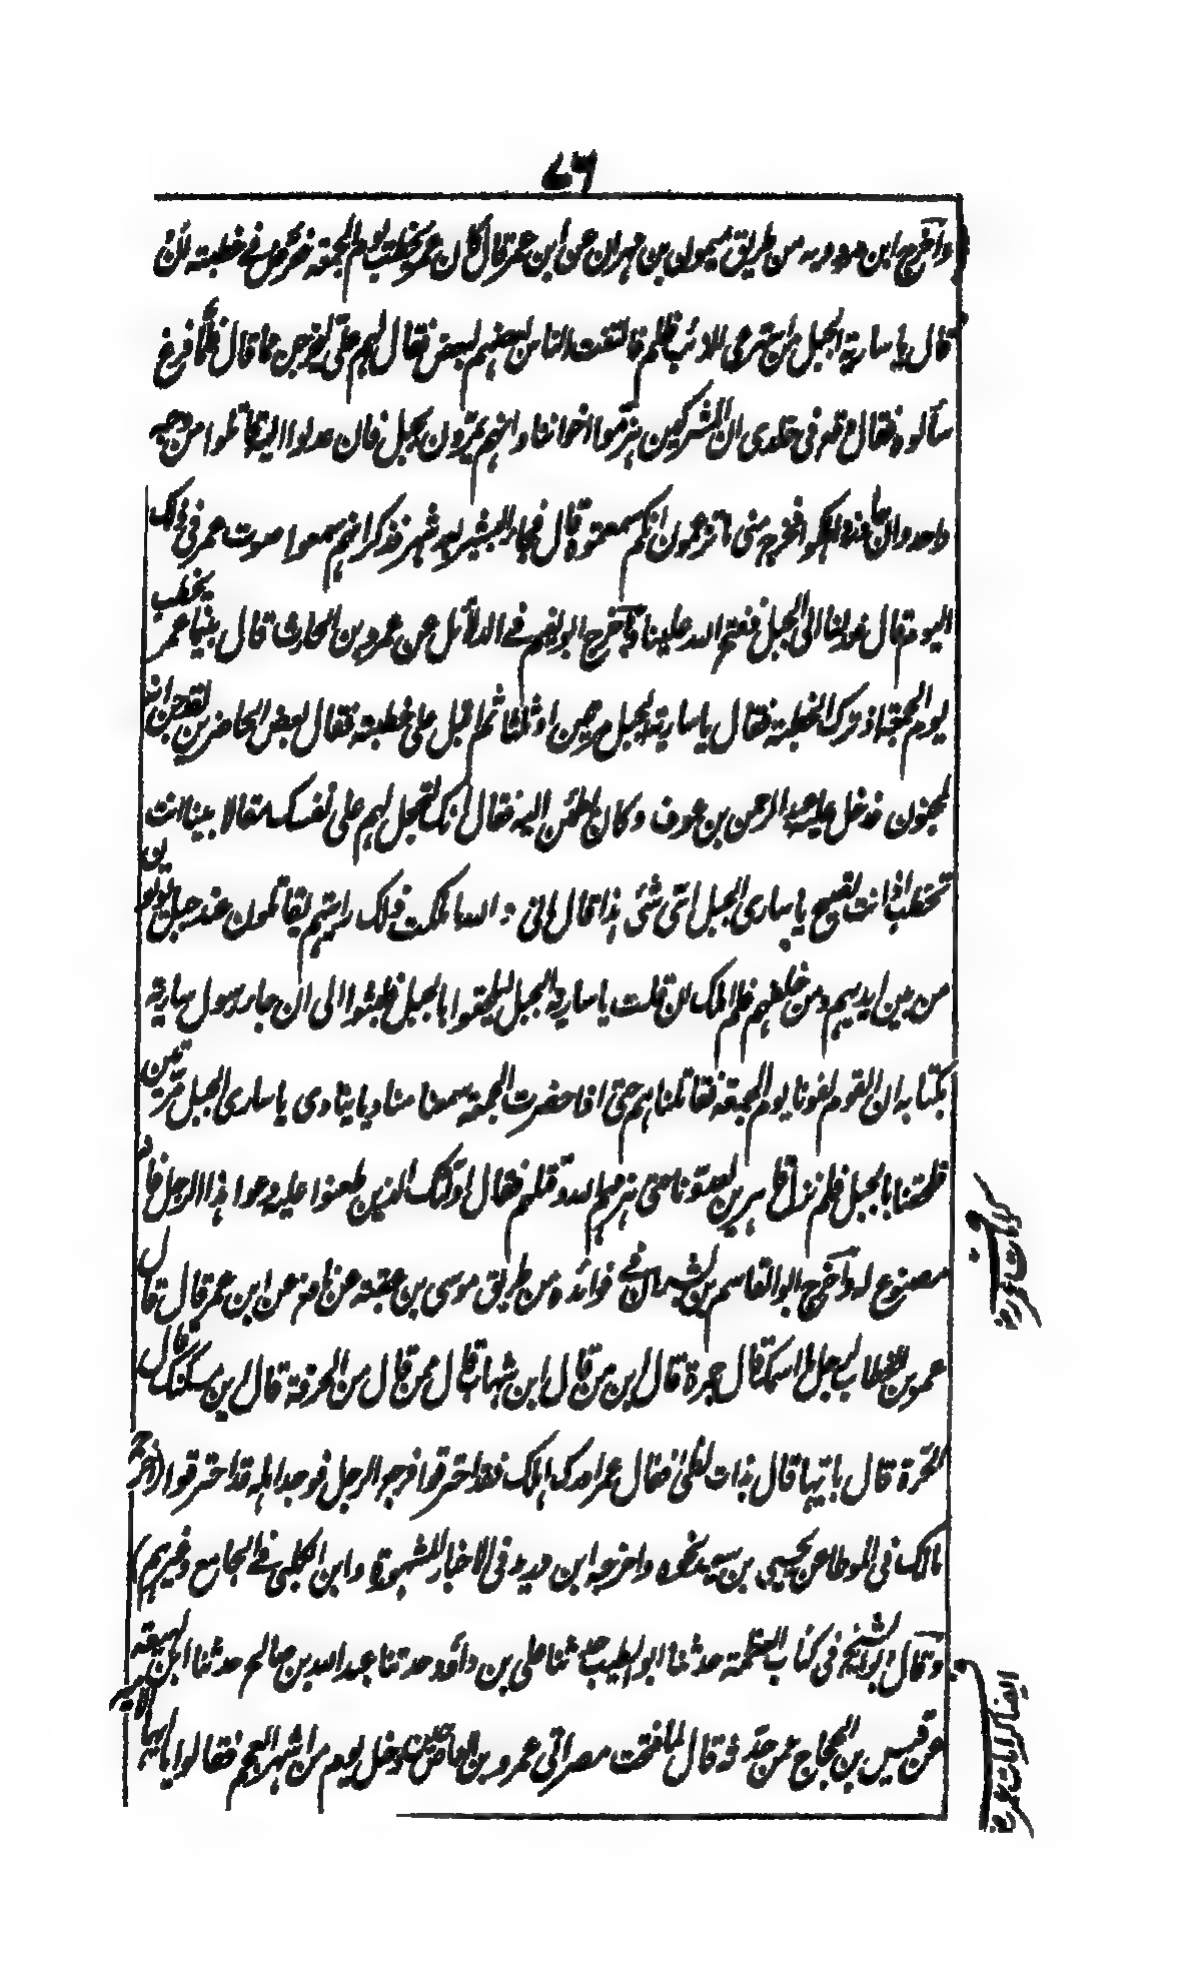 ٧٦
وأخرج ابن مردويه من طريق ميمون بن مهران عن ابن عمر قال كان عمر يخطب يوم الجمعة فعرض في خطبته ان
قال يا سارية الجبل من استرعى الذئب ظلم فالتفت الناس بعضهم لبعض فقال لهم علي ليخرجن مما قال فلما فرغ
سألوه فقال وقع في خلدي ان المشركين هزموا اخواننا وانهم يمرون بجبل فان عدلوا اليه قاتلوا من وجه
واحد وان جازوا هلكوا فخرج مني ما تزعمون انكم سمعتموه قال فجاء البشير بعد شهر فذكر انهم سمعوا صوت عمر في ذلك
اليوم قال فعدلنا الى الجبل ففتح الله علينا وأخرج ابو نعيم في الدلائل عن عمرو بن الحارث قال بينما عمر يخطب
يوم الجمعة اذ ترك الخطبة فقال يا سارية الجبل مرتين او ثلثا ثم اقبل على خطبته فقال بعض الحاضرين لقد جن انه
لمجنون فدخل عليه عبد الرحمن بن عوف وكان يطمئن اليه فقال انك لتجعل لهم على نفسك مقالا بينا انت
تخطب اذ انت تصيح يا ساري الجبل اي شئ هذا قال اني والله ما ملكت ذلك رايتهم يقاتلون عند جبل يؤتون
من بين ايديهم ومن خلفهم فلم املك ان قلت يا سارية الجبل ليلحقوا بالجبل فلبثوا الى ان جاء رسول سارية
بكتابه ان القوم لقونا يوم الجمعة فقاتلناهم حتى اذا حضرت الجمعة سمعنا مناديا ينادي يا ساري الجبل مرتين
فلحقنا بالجبل فلم نزل قاهرين لعدونا حتى هزمهم الله وقتلهم فقال اولئك الذين طعنوا عليه دعوا هذا الرجل فانه
مصنوع له وأخرج ابو القاسم بن بشران في فوائده من طريق موسى بن عقبة عن نافع عن ابن عمر قال قال
عمر بن الخطاب لرجل ما اسمك قال جمرة قال ابن من قال ابن شهاب قال ممن قال من الحرقة قال اين مسكنك قال
الحرة قال بايها قال بذات لظى فقال عمر ادرك اهلك فقد احترقوا فرجع الرجل فوجد اهله قد احترقوا (أخرجه
مالك في الموطا عن يحيى بن سعيد نحوه واخرجه ابن دريد في الاخبار المشهورة وابن الكلبي في الجامع وغيرهم)
وقال ابو الشيخ في كتاب العظمة حدثنا ابو الطيب حدثنا علي بن داؤد حدثنا عبد الله بن صالح حدثنا ابن لهيعة
عن قيس بن الحجاج عمن حدثه قال لما فتحت مصر اتى عمرو بن العاص حين دخل يوم من اشهر العجم فقالوا يا ايها الامير
كرامات عمر رضـ
ايضا كرامات عمر رضـ